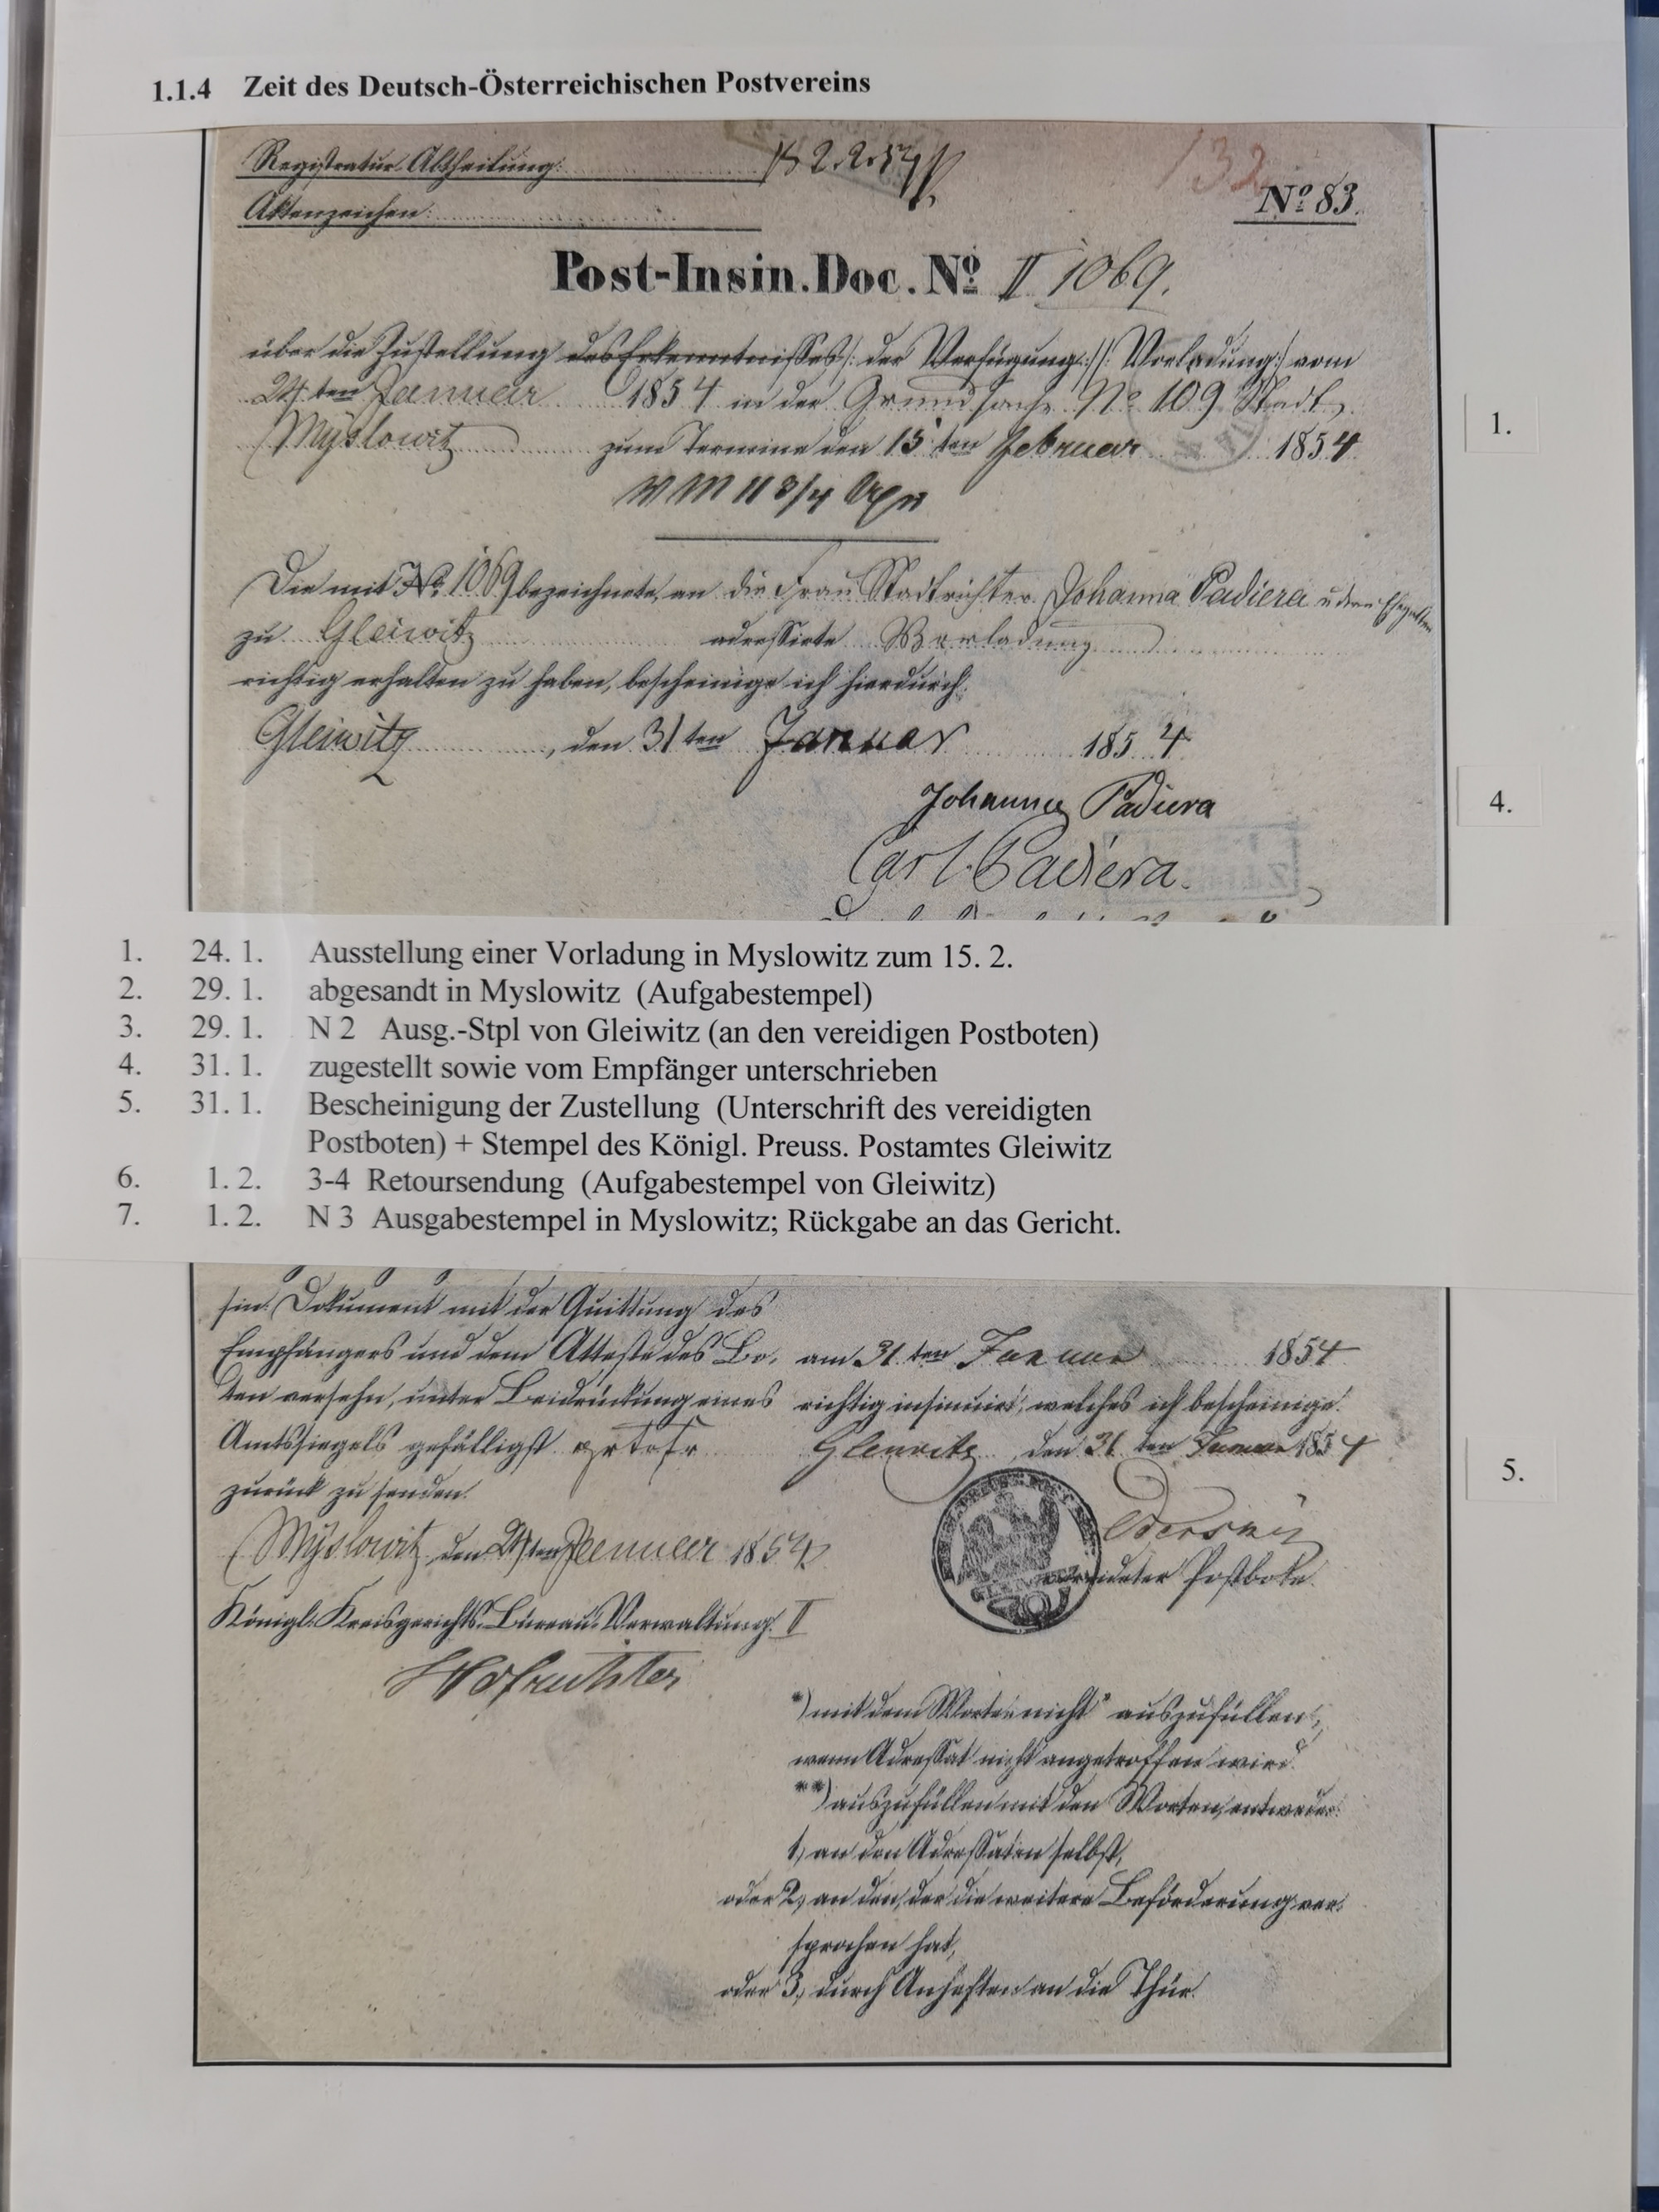 1.1.4 Zeit des Deutsch-Österreichischen Postvereins
Registratur-Abtheilung:
132
Aktenzeichen:
No 83.
Post-Insin.Doc.No II 1069.
über die Zustellung des Erkenntnisses /: der Verfügung :/ /: Vorladung :/ vom
24 ten Januar 1854 in der Grundsache No 109 Stadt
Myslowitz zum Termine den 15 ten Februar 1854
VM 11 3/4 Uhr
Die mit No 1069 bezeichnete, an die Frau Stadtrichter Johanna Padiera u deren Ehegatten
zu Gleiwitz adressirte Vorladung
richtig erhalten zu haben, bescheinige ich hierdurch.
Gleiwitz, den 31 ten Januar 1854
Johanna Padiera
Carl Padiera.
1.
4.
1. 24. 1. Ausstellung einer Vorladung in Myslowitz zum 15. 2.
2. 29. 1. abgesandt in Myslowitz (Aufgabestempel)
3. 29. 1. N 2 Ausg.-Stpl von Gleiwitz (an den vereidigen Postboten)
4. 31. 1. zugestellt sowie vom Empfänger unterschrieben
5. 31. 1. Bescheinigung der Zustellung (Unterschrift des vereidigten
Postboten) + Stempel des Königl. Preuss. Postamtes Gleiwitz
6. 1. 2. 3-4 Retoursendung (Aufgabestempel von Gleiwitz)
7. 1. 2. N 3 Ausgabestempel in Myslowitz; Rückgabe an das Gericht.
sin. Dokument mit der Quittung des
Empfängers und dem Atteste des Bo-
ten versehn, unter Beidrückung eines
Amtssiegels gefälligst
zurück zu senden.
Myslowitz, den 24 ten Januar 1854
Königl. Kreisgerichts-Büreau-Verwaltung. II
Hofrichter
am 31 ten Januar 1854
richtig insinuirt, welches ich bescheinige.
Gleiwitz, den 31 ten Januar 1854
vereideter Postbote.
5.
*) mit dem Worte „nicht" auszufüllen,
wenn Adressat nicht angetroffen wird.
**) auszufüllen mit den Worten, entweder:
1, an den Adressaten selbst,
oder 2, an den, der die weitere Beförderung ver-
sprochen hat,
oder 3, durch Anheften an die Thür.